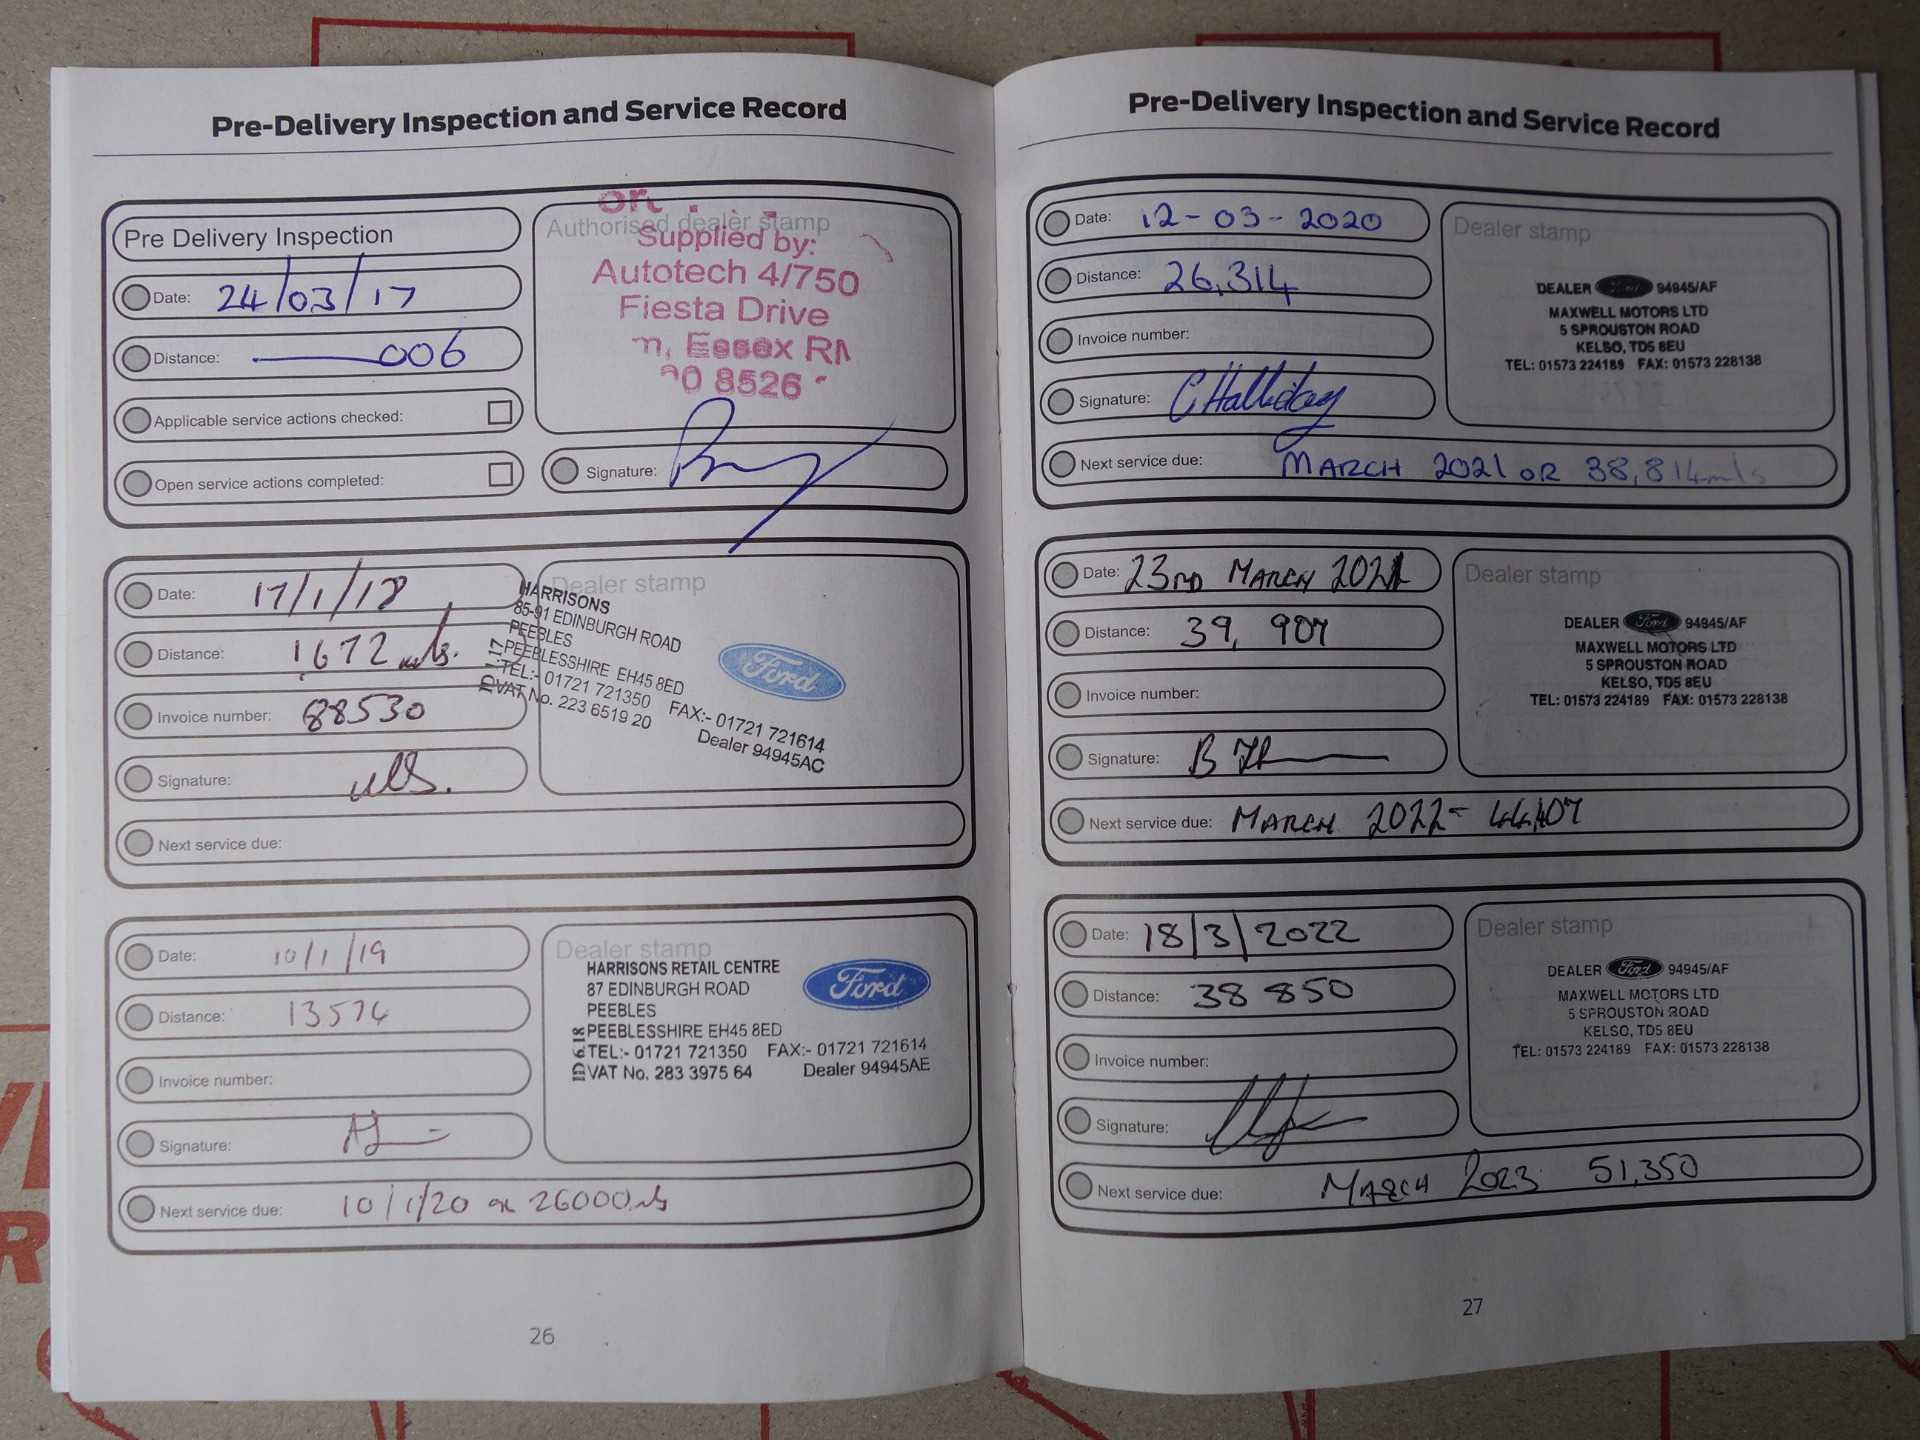 Pre-Delivery Inspection and Service Record
Pre Delivery Inspection
Date: 24/03/17
Distance: 006
Applicable service actions checked:
Open service actions completed:
Authorised dealer stamp
Supplied by:
Autotech 4/750
Fiesta Drive
Essex
8526
Signature:
Date: 17/1/18
Distance: 1672 mls.
Invoice number: 88530
Signature:
Next service due:
Dealer stamp
HARRISONS
85-91 EDINBURGH ROAD
PEEBLES
PEEBLESSHIRE EH45 8ED
TEL:- 01721 721350 FAX:- 01721 721614
VAT No. 223 6519 20 Dealer 94945AC
Ford
Date: 10/1/19
Distance: 13574
Invoice number:
Signature:
Next service due: 10/1/20 or 26000mls
Dealer stamp
HARRISONS RETAIL CENTRE
87 EDINBURGH ROAD
PEEBLES
PEEBLESSHIRE EH45 8ED
TEL:- 01721 721350 FAX:- 01721 721614
VAT No. 283 3975 64 Dealer 94945AE
Ford
26
Pre-Delivery Inspection and Service Record
Date: 12-03-2020
Distance: 26,314
Invoice number:
Signature: C Halliday
Next service due: MARCH 2021 OR 38,814mls
Dealer stamp
DEALER Ford 94945/AF
MAXWELL MOTORS LTD
5 SPROUSTON ROAD
KELSO, TD5 8EU
TEL: 01573 224189 FAX: 01573 228138
Date: 23RD MARCH 2021
Distance: 39, 907
Invoice number:
Signature:
Next service due: MARCH 2022-
Dealer stamp
DEALER Ford 94945/AF
MAXWELL MOTORS LTD
5 SPROUSTON ROAD
KELSO, TD5 8EU
TEL: 01573 224189 FAX: 01573 228138
Date: 18/3/2022
Distance: 38 850
Invoice number:
Signature:
Next service due: MARCH 2023 51,350
Dealer stamp
DEALER Ford 94945/AF
MAXWELL MOTORS LTD
5 SPROUSTON ROAD
KELSO, TD5 8EU
TEL: 01573 224189 FAX: 01573 228138
27